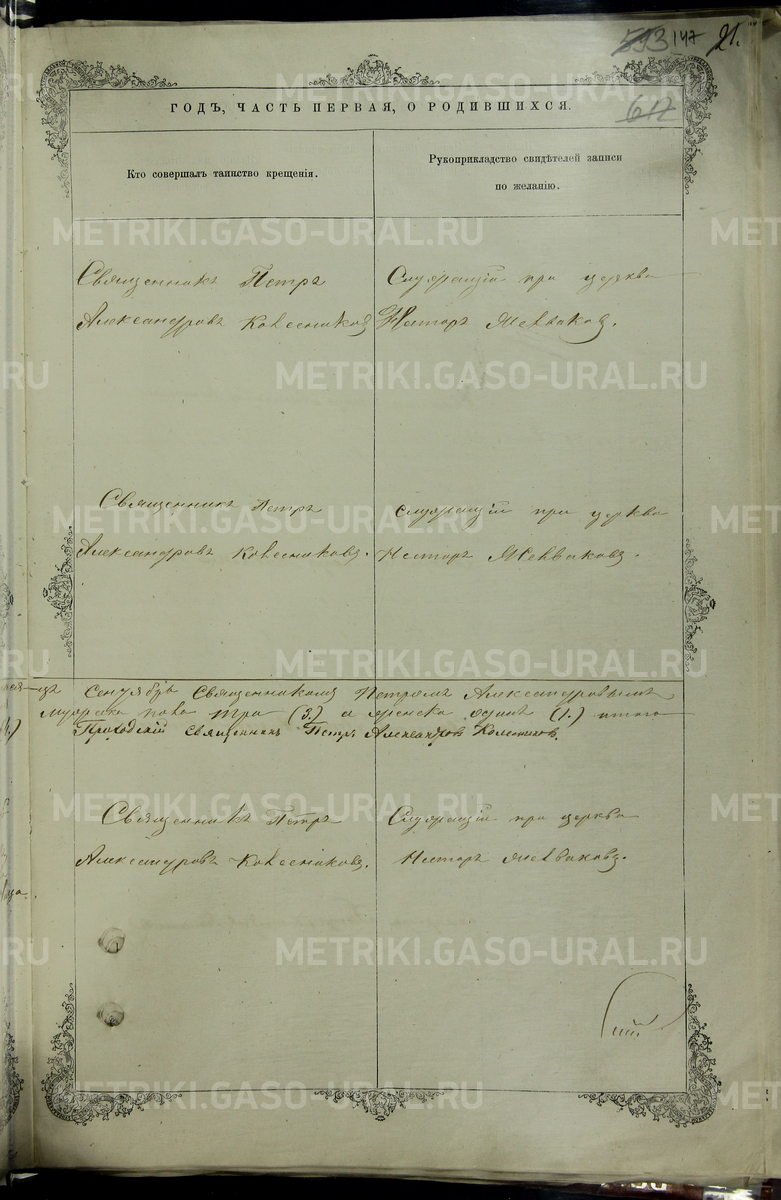 593 147 21.
617
ГОДЪ, ЧАСТЬ ПЕРВАЯ, О РОДИВШИХСЯ.
Кто совершалъ таинство крещенія.
Рукоприкладство свидѣтелей записи
по желанію.
Священникъ Петръ
Александровъ Колесниковъ
Служащій при церкви
Несторъ
Священникъ Петръ
Александровъ Колесниковъ.
служащій при церкви
Несторъ
Сентябрѣ Священникомъ Петромъ Александровымъ
мужеска пола три (3.) а женска одинъ (1.) итого
Приходскій священникъ Петръ Александровъ Колесниковъ.
Священникъ Петръ
Александровъ Колесниковъ.
Служащій при церкви
Несторъ
METRIKI.GASO-URAL.RU